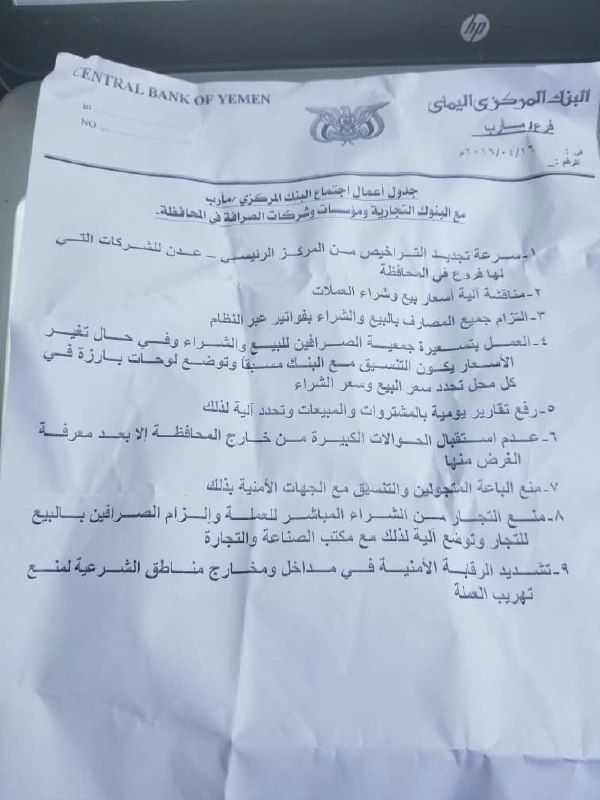 hp
CENTRAL BANK OF YEMEN
البنك المركزي اليمني
in ....................
فرع/ مارب
NO ....................
٢٠١٩/٠٤/١٦م
الرقم:
جدول أعمال اجتماع البنك المركزي /مارب
مع البنوك التجارية ومؤسسات وشركات الصرافة في المحافظة.
١-سرعة تجديد التراخيص من المركز الرئيسي – عدن للشركات التي
لها فروع في المحافظة
٢-مناقشة آلية أسعار بيع وشراء العملات
٣-التزام جميع المصارف بالبيع والشراء بفواتير عبر النظام
٤-العمل بتسعيرة جمعية الصرافين للبيع والشراء وفي حال تغير
الأسعار يكون التنسيق مع البنك مسبقاً وتوضع لوحات بارزة في
كل محل تحدد سعر البيع وسعر الشراء
٥-رفع تقارير يومية بالمشتروات والمبيعات وتحدد آلية لذلك
٦-عدم استقبال الحوالات الكبيرة من خارج المحافظة إلا بعد معرفة
الغرض منها
٧-منع الباعة المتجولين والتنسيق مع الجهات الأمنية بذلك
٨-منع التجار من الشراء المباشر للعملة وإلزام الصرافين بالبيع
للتجار وتوضع آلية لذلك مع مكتب الصناعة والتجارة
٩-تشديد الرقابة الأمنية في مداخل ومخارج مناطق الشرعية لمنع
تهريب العملة